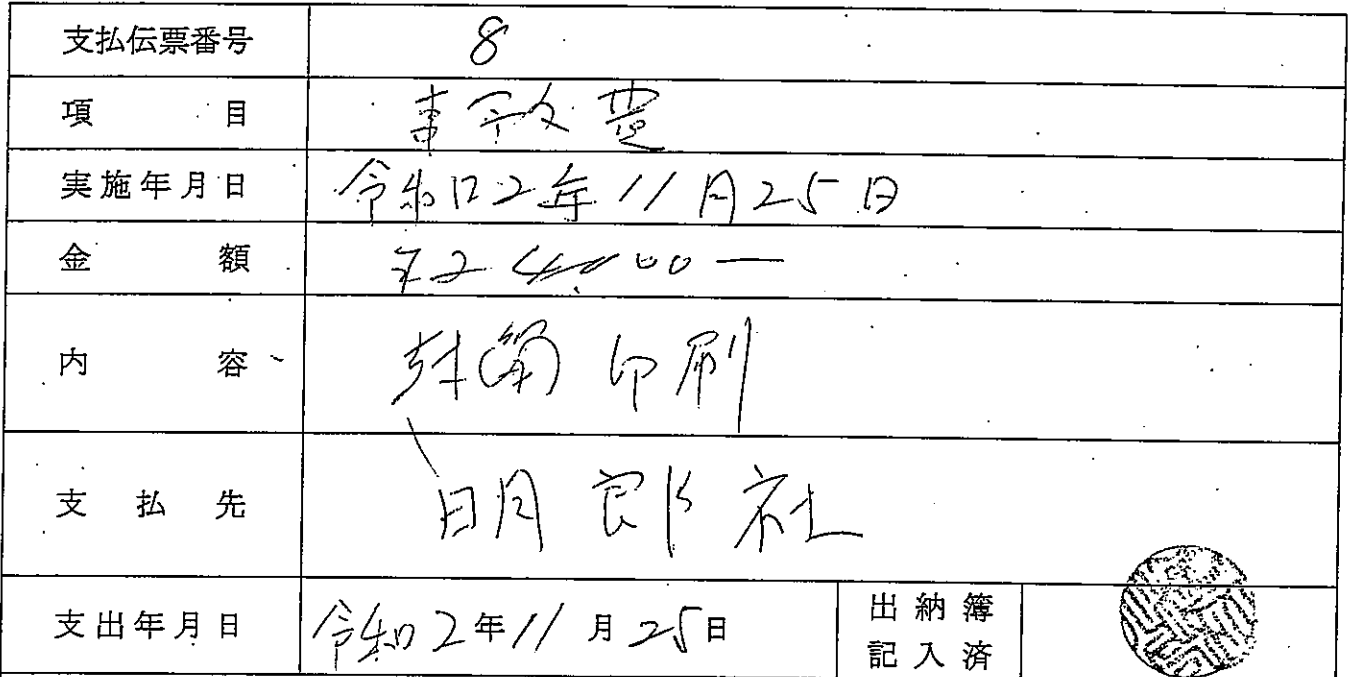 支払伝票番号 8
項目
実施年月日 令和2年11月25日
金額
内容 封筒印刷
支払先 明郎社
支出年月日 令和2年11月25日 出納簿記入済